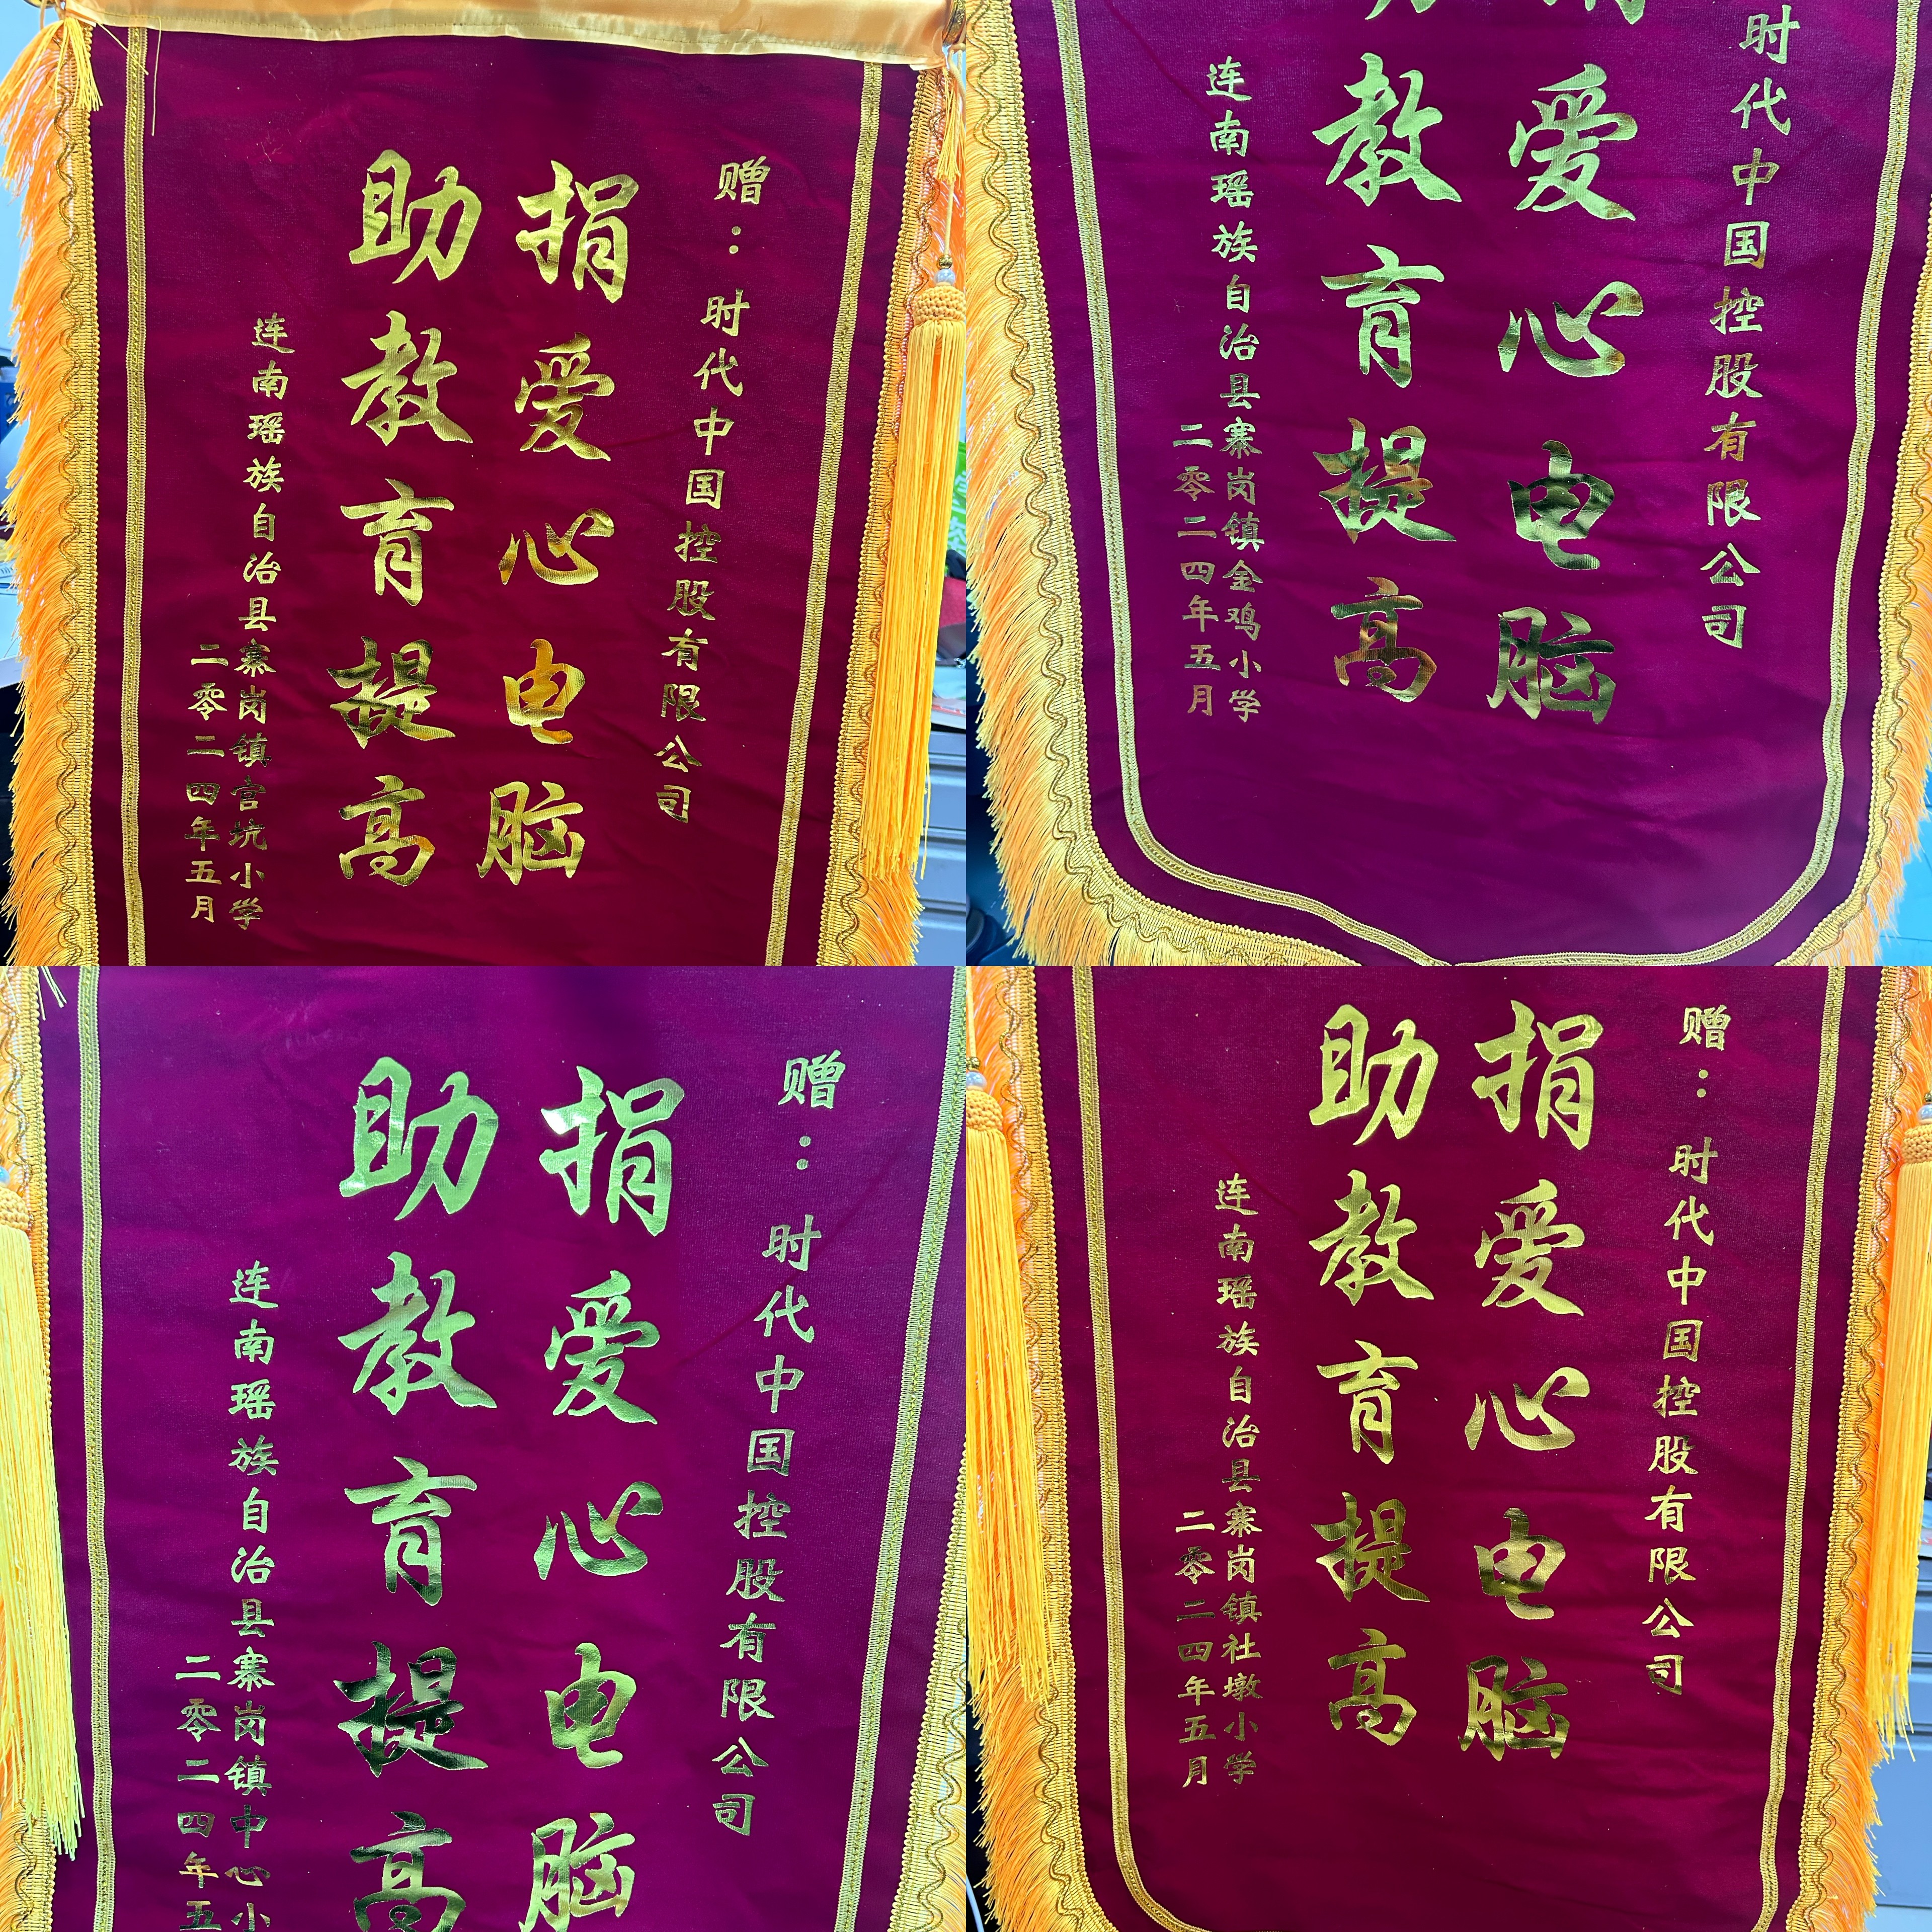 赠：时代中国控股有限公司
捐爱心电脑
助教育提高
连南瑶族自治县寨岗镇营坑小学
二零二四年五月
时代中国控股有限公司
爱心电脑
教育提高
连南瑶族自治县寨岗镇金鸡小学
二零二四年五月
赠：时代中国控股有限公司
捐爱心电脑
助教育提高
连南瑶族自治县寨岗镇中心小
二零二四年五
赠：时代中国控股有限公司
捐爱心电脑
助教育提高
连南瑶族自治县寨岗镇社墩小学
二零二四年五月